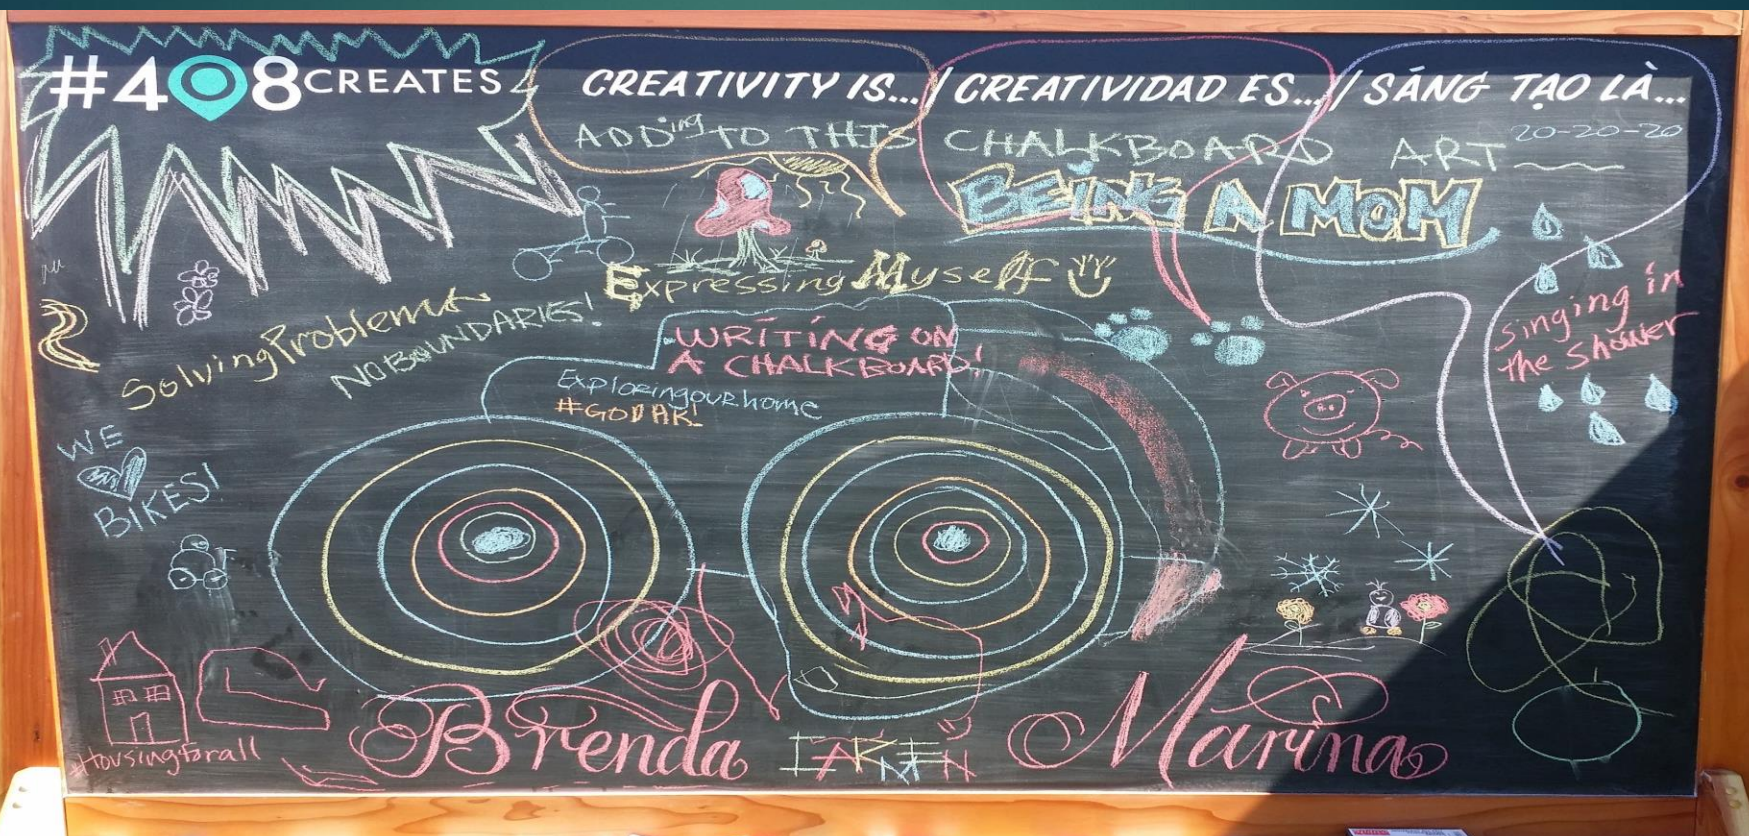 #408CREATES
CREATIVITY IS... / CREATIVIDAD ES... / SÁNG TẠO LÀ...
ADDing TO THIS CHALKBOARD ART
20-20-20
BEING A MOM
Expressing Myself
Solving Problems
NO BOUNDARIES!
WRITING ON
A CHALKBOARD!
Exploring our home
singing in
the shower
WE
BIKES!
#Housingforall
Brenda
Marina